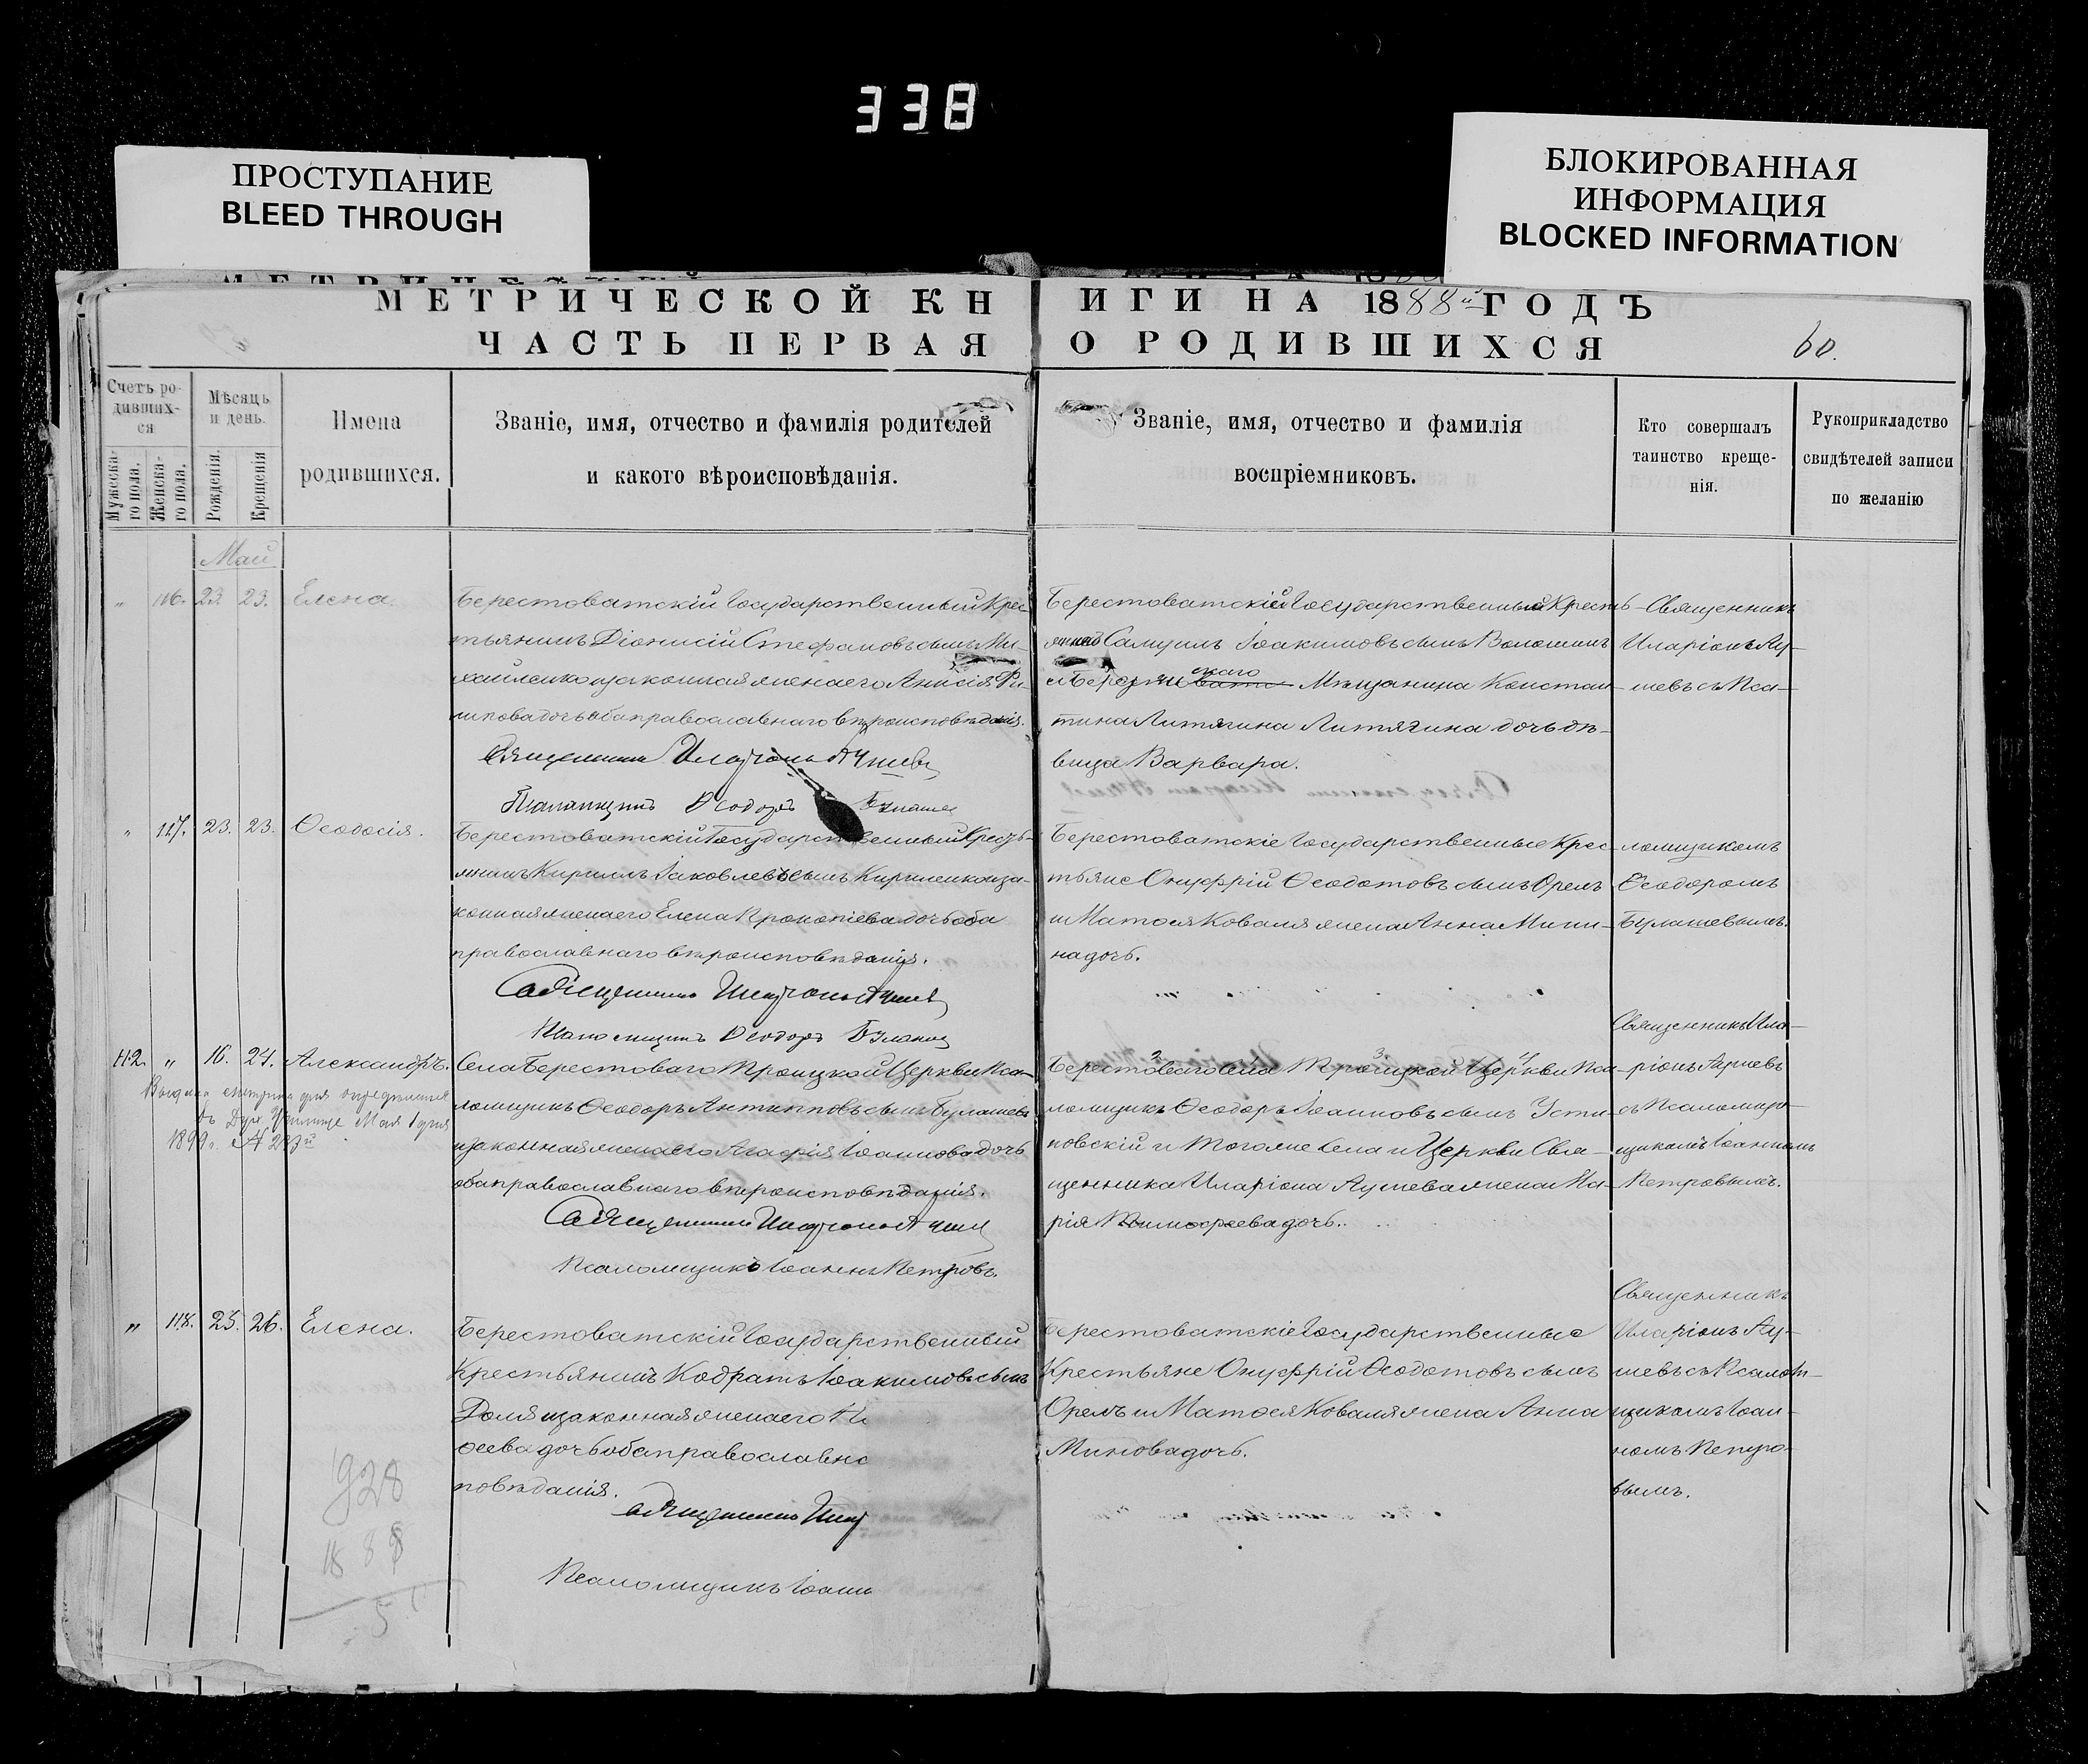 338
ПРОСТУПАНИЕ
BLEED THROUGH
БЛОКИРОВАННАЯ
ИНФОРМАЦИЯ
BLOCKED INFORMATION
МЕТРИЧЕСКОЙ КНИГИ НА 1888й ГОДЪ
ЧАСТЬ ПЕРВАЯ О РОДИВШИХСЯ
60.
Счетъ ро-
дивших-
ся
Мужеска-
го пола.
Женска-
го пола.
Мѣсяцъ
и день.
Рожденія.
Крещенія
Имена
родившихся.
Званіе, имя, отчество и фамилія родителей
и какого вѣроисповѣданія.
Званіе, имя, отчество и фамилія
воспріемниковъ.
Кто совершалъ
таинство креще-
нія.
Рукоприкладство
свидѣтелей записи
по желанію
Май
" 116. 23. 23. Елена.
Берестоватскій Государственный Крес-
тьянинъ Діонисій Стефановъ сынъ Ми-
хайленко и законная жена его Анисія Фи-
липова дочь оба православнаго вѣроисповѣданія.
Священникъ Иларіонъ
Псаломщикъ Ѳеодоръ
Государственный Кресть-
Самуилъ Іоакимовъ сынъ Волошинъ
Мѣщанина Констан-
тина Литягина Литягина дочь дѣ-
вица Варвара.
Священникъ
Иларіонъ Ау-
шевъ съ Пса-
" 117. 23. 23. Ѳеодосія.
Берестоватскій Государственный Кресть-
янинъ Кириллъ Іаковлевъ сынъ Кириленко и за-
конная жена его Елена Прокопіева дочь оба
православнаго вѣроисповѣданія.
Священникъ Иларіонъ
Псаломщикъ Ѳеодоръ
Берестоватскіе Государственные Крес-
тьяне Онуфрій Ѳеодотовъ сынъ Орелъ
и Матѳея Коваля жена Анна Мини-
на дочь.
ломщикомъ
Ѳеодоромъ
Булашевымъ.
112. " 16. 24. Александръ.
1899
Села Берестоваго Троицкой Церкви Пса-
ломщикъ Ѳеодоръ Антиповъ сынъ Булашевъ
и законная жена его Агафія Іоаннова дочь
оба православнаго вѣроисповѣданія.
Священникъ Иларіонъ
Псаломщикъ Іоаннъ Петровъ.
Берестоваго Села Троицкой Церкви Пса-
ломщикъ Ѳеодоръ Іоанновъ сынъ Усти-
новскій и того же Села и Церкви Свя-
щенника Иларіона Аушева жена Ма-
рія Тимофеева дочь.
Священникъ Ила-
ріонъ Аушевъ
съ Псаломщи-
щикомъ Іоанномъ
Петровымъ.
" 118. 25. 26. Елена.
Берестоватскій Государственный
Крестьянинъ Кодратъ Іоакимовъ сынъ
и законная жена его
ѳеева дочь оба православно
повѣданія.
Священникъ
Псаломщикъ Іоанн
Берестоватскіе Государственные
Крестьяне Онуфрій Ѳеодотовъ сынъ
Орелъ и Матѳея Коваля жена Анна
Минова дочь.
Священникъ
Иларіонъ Ау-
шевъ съ Псалом-
щикомъ Іоан-
номъ Петро-
вымъ.
1928
1888